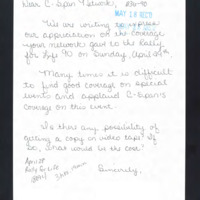 Dear C-Span Network,
MAY 18 RECD
We are writing to express
our appreciation on the coverage
your network gave to the Rally
for Life '90 on Sunday, April 28th.
Many times it is difficult
to find good coverage on special
events and applaud C-Span's
coverage on this event.
Is there any possibility of
getting a copy on video tape? If
so, what would be the cost?
April 28
Rally for Life
Sincerely,